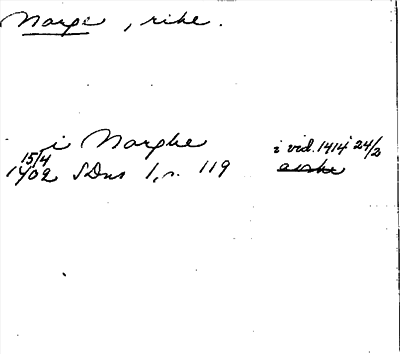 Norge, rike.
i Norghe i vid. 1414 24/2
15/4
1402 SDns 1, s. 119